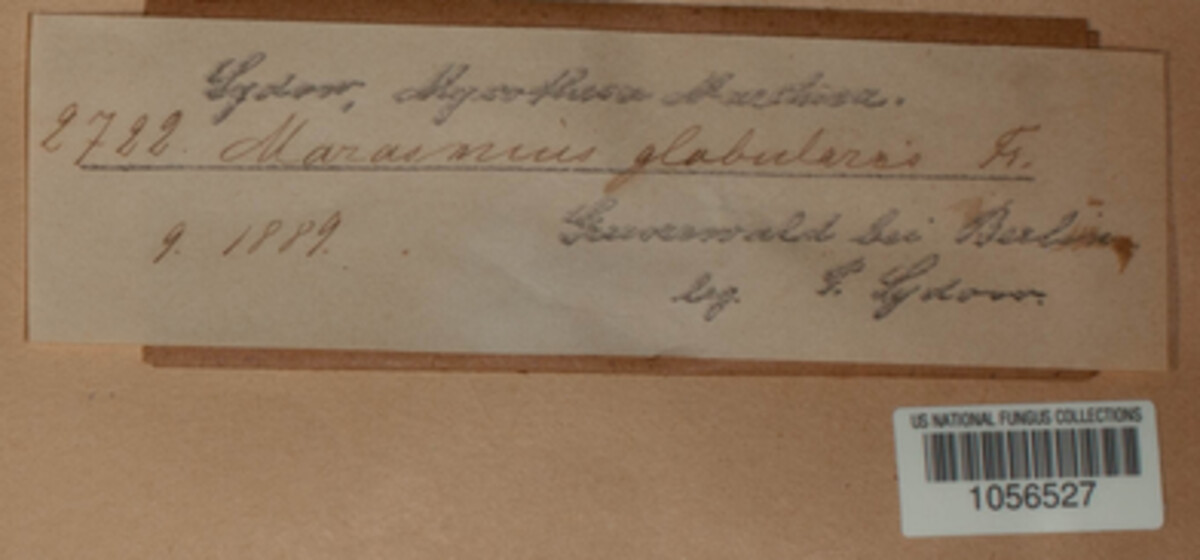 Sydow, Mycotheca Marchica.
2722. Marasmius globularis Fr.
9. 1889. Grunewald bei Berlin,
leg. P. Sydow.
US NATIONAL FUNGUS COLLECTIONS
1056527